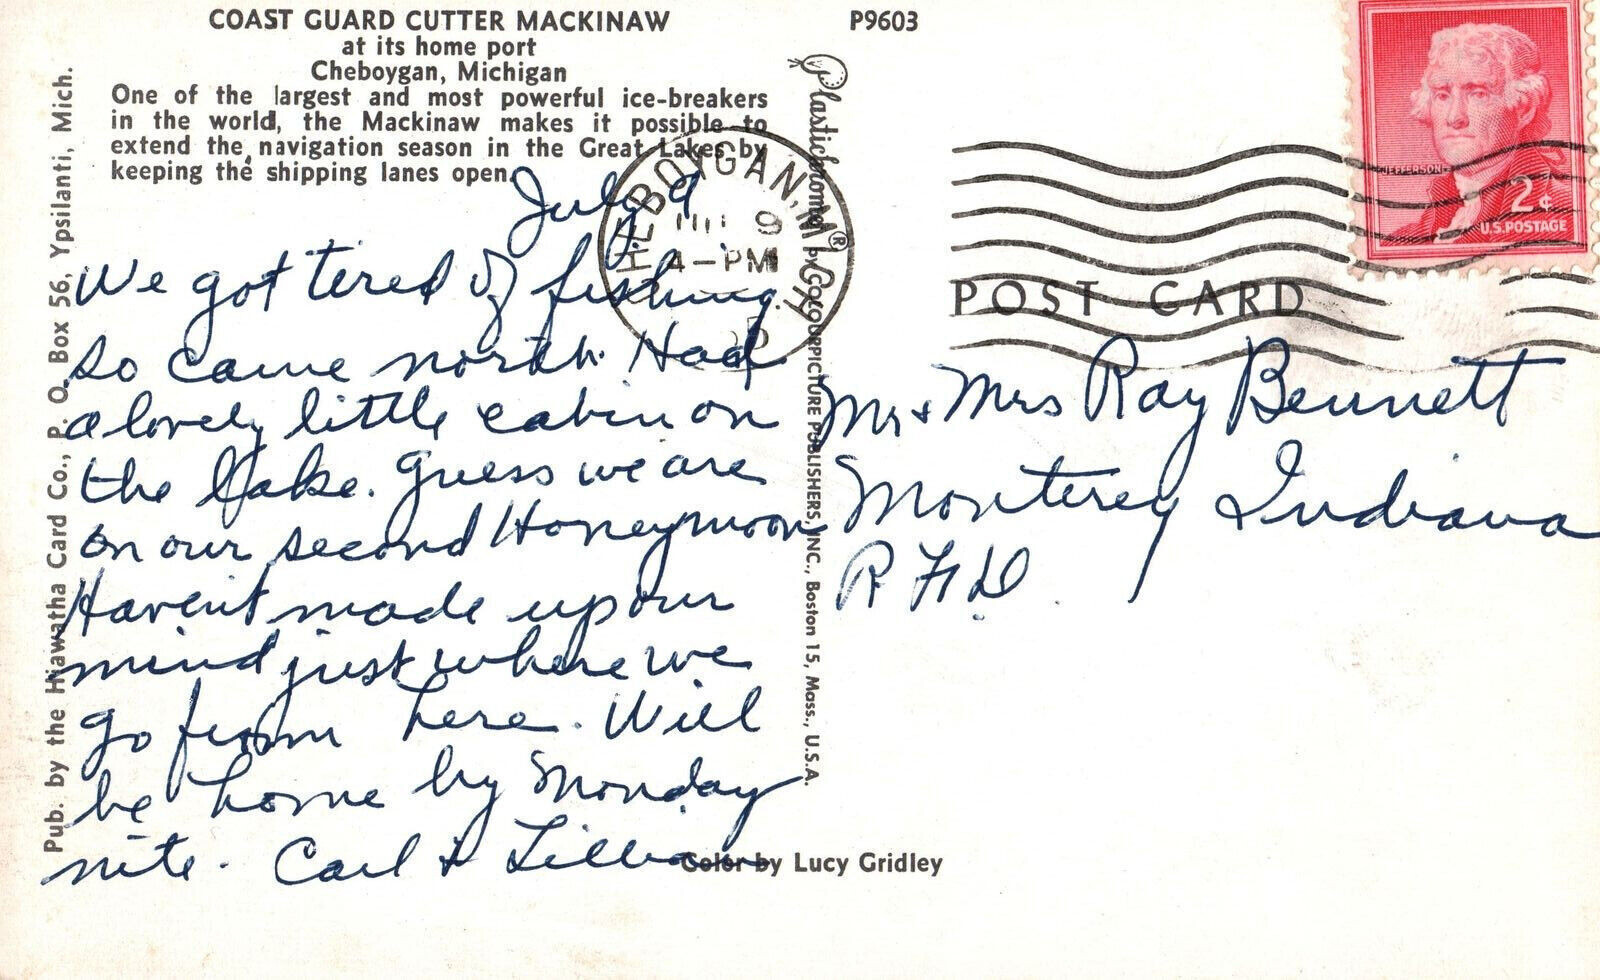 COAST GUARD CUTTER MACKINAW
at its home port
Cheboygan, Michigan
One of the largest and most powerful ice-breakers
in the world, the Mackinaw makes it possible to
extend the navigation season in the Great Lakes by
keeping the shipping lanes open.
P9603
Pub. by the Hiawatha Card Co., P. O. Box 56, Ypsilanti, Mich.
July 9
We got tered of fishing
so came north. Had
a lovely little cabin on
the lake. Guess we are
on our second Honeymoon
Haven't made up our
mind just where we
go from here. Will
be home by Monday
nite. Carl & Lillian
Color by Lucy Gridley
Plastichrome® by COLOURPICTURE PUBLISHERS, INC., Boston 15, Mass., U.S.A.
HEBOYGAN, MICH
9
4-PM
JEFFERSON
2¢
U.S. POSTAGE
POST CARD
Mr & Mrs Ray Bennett
Monterey Indiana
R F D